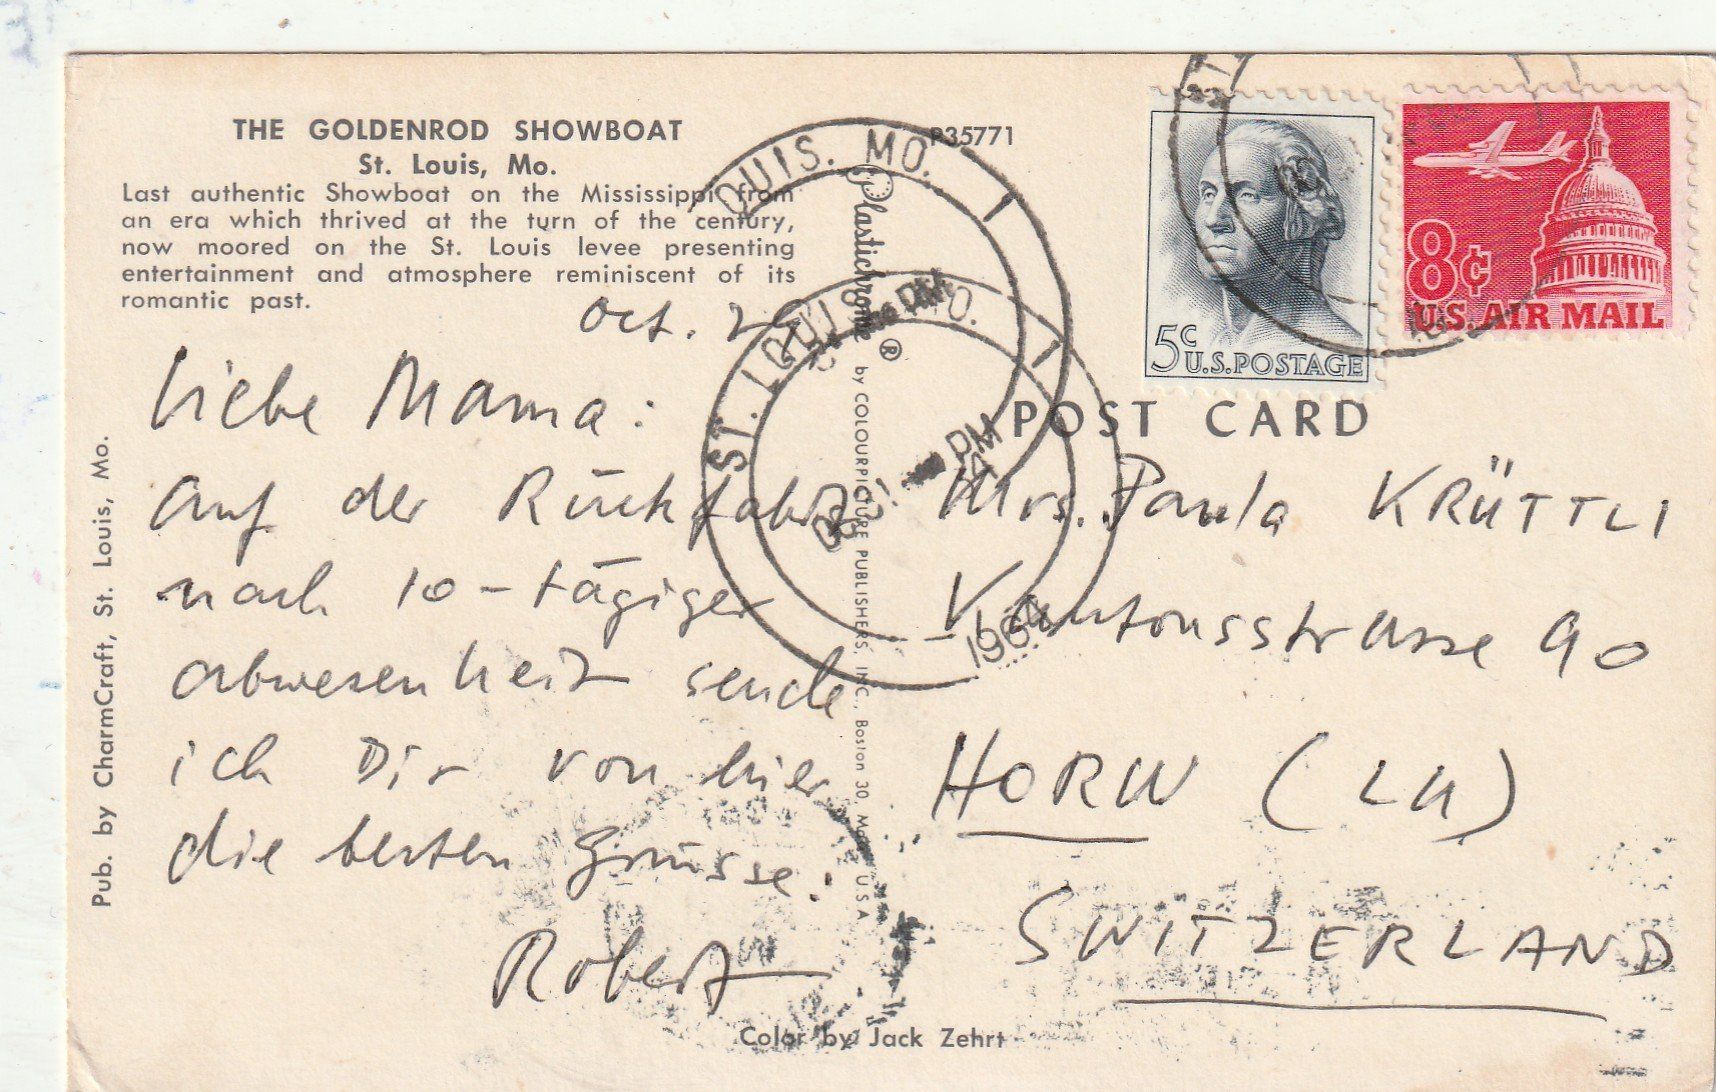 THE GOLDENROD SHOWBOAT
St. Louis, Mo.
Last authentic Showboat on the Mississippi from
an era which thrived at the turn of the century,
now moored on the St. Louis levee presenting
entertainment and atmosphere reminiscent of its
romantic past.
Oct.
Liebe Mama:
auf der Rückfahrt
nach 10-tägiger
abwesenheit sende
ich Dir von hier
die besten Grüsse.
Robert
Pub. by CharmCraft, St. Louis, Mo.
P35771
Plastichrome ® by COLOURPICTURE PUBLISHERS, INC., Boston 30, Mass., U.S.A.
LOUIS. MO. 1
PM
ST. LOUIS, MO. 1
PM
1964
5c U.S. POSTAGE
8¢
U.S. AIR MAIL
POST CARD
Mrs. Paula KRÜTTLI
Kantonsstrasse 90
HORW (LU)
SWITZERLAND
Color by Jack Zehrt